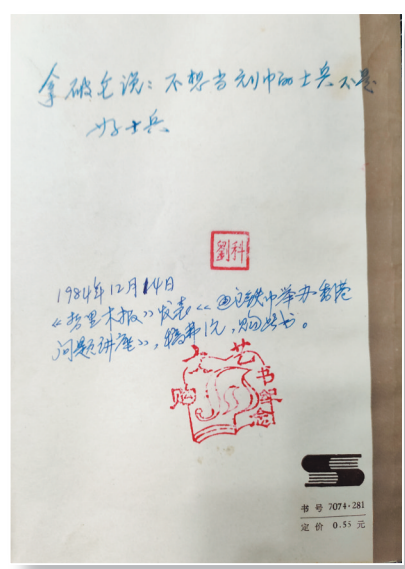 拿破仑说：不想当元帅的士兵不是
好士兵
劉科
1984年12月14日
《哲里木报》发表《
铁中举办香港
问题讲座》，稿费1元，购此书。
工艺
购书纪念
书号 7074·281
定价 0.55 元